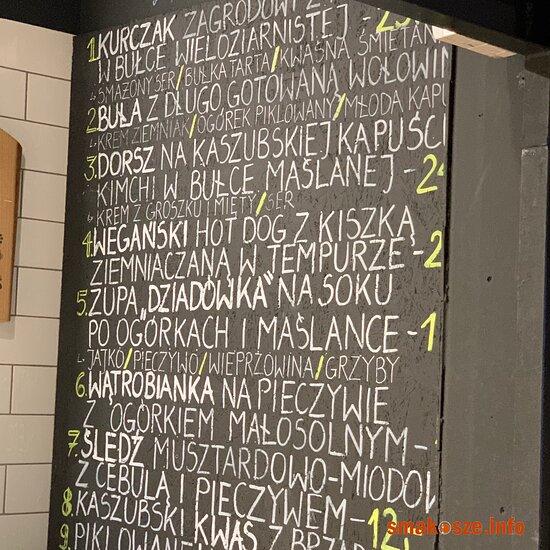 1. KURCZAK ZAGRODOWY Z
W BUŁCE WIELOZIARNISTEJ -
↳ SMAŻONY SER/BUŁKA TARTA/KWAŚNA ŚMIETAN
2. BUŁA Z DŁUGO GOTOWANĄ WOŁOWIN
↳ KREM ZIEMNIAK/OGÓREK PIKLOWANY/MŁODA KAPU
3. DORSZ NA KASZUBSKIEJ KAPUŚCI
KIMCHI W BUŁCE MAŚLANEJ - 2
↳ KREM Z GROSZKU I MIĘTY/SER
4. WEGAŃSKI HOT DOG Z KISZKĄ
ZIEMNIACZANĄ W TEMPURZE - 2
5. ZUPA „DZIADÓWKA" NA SOKU
PO OGÓRKACH I MAŚLANCE - 1
↳ JAJKO/PIECZYWO/WIEPRZOWINA/GRZYBY
6. WĄTROBIANKA NA PIECZYWIE
Z OGÓRKIEM MAŁOSOLNYM -
7. ŚLEDŹ MUSZTARDOWO-MIODOW
Z CEBULĄ I PIECZYWEM - 12
8. KASZUBSKI KWAS Z BRZ
9. PIKLOWANE
smakosze.info